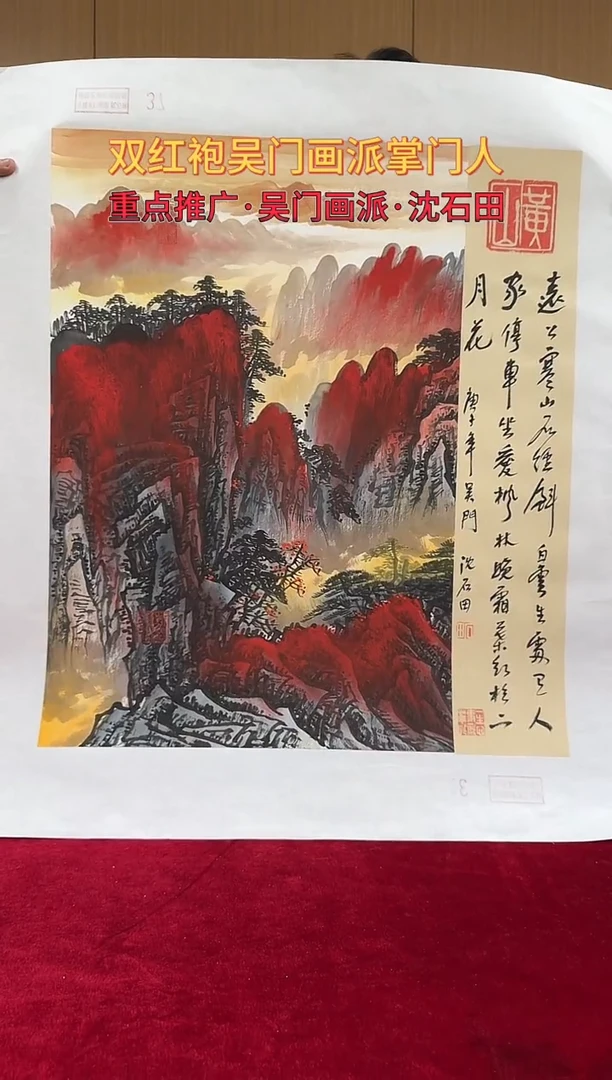 双红袍吴门画派掌门人
重点推广·吴门画派·沈石田
黃山
遠上寒山石徑斜白雲生處有人
家停車坐愛楓林晚霜葉紅於二
月花
庚子年吴門沈石田